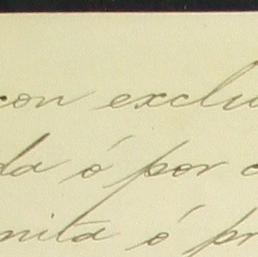 con exclu
da ó por c
nita ó pr